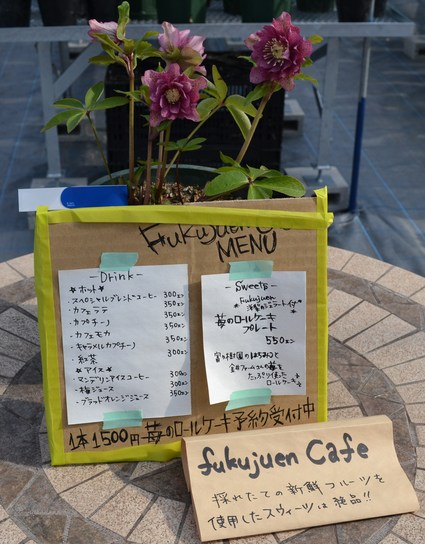 Fukujuen Cafe
MENU
-Drink-
★ホット★
・スペシャルブレンドコーヒー 300エン
・カフェラテ 350エン
・カプチーノ 350エン
・カフェモカ 350エン
・キャラメルカプチーノ 350エン
・紅茶 300エン
★アイス★
・マンデリンアイスコーヒー 300エン
・梅ジュース 300エン
・ブラッドオレンジジュース 350エン
-Sweets-
★Fukujuen
ジェラート付★
苺のロールケーキ
プレート
550エン
はちみつと
苺を
たっぷり使った
ロールケーキ★
1本1500円苺のロールケーキ予約受付中
fukujuen Cafe
採れたての新鮮フルーツを
使用したスウィーツは絶品!!